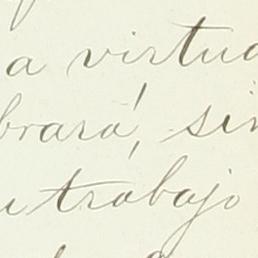 a virtud
brará, sin
u trabajo